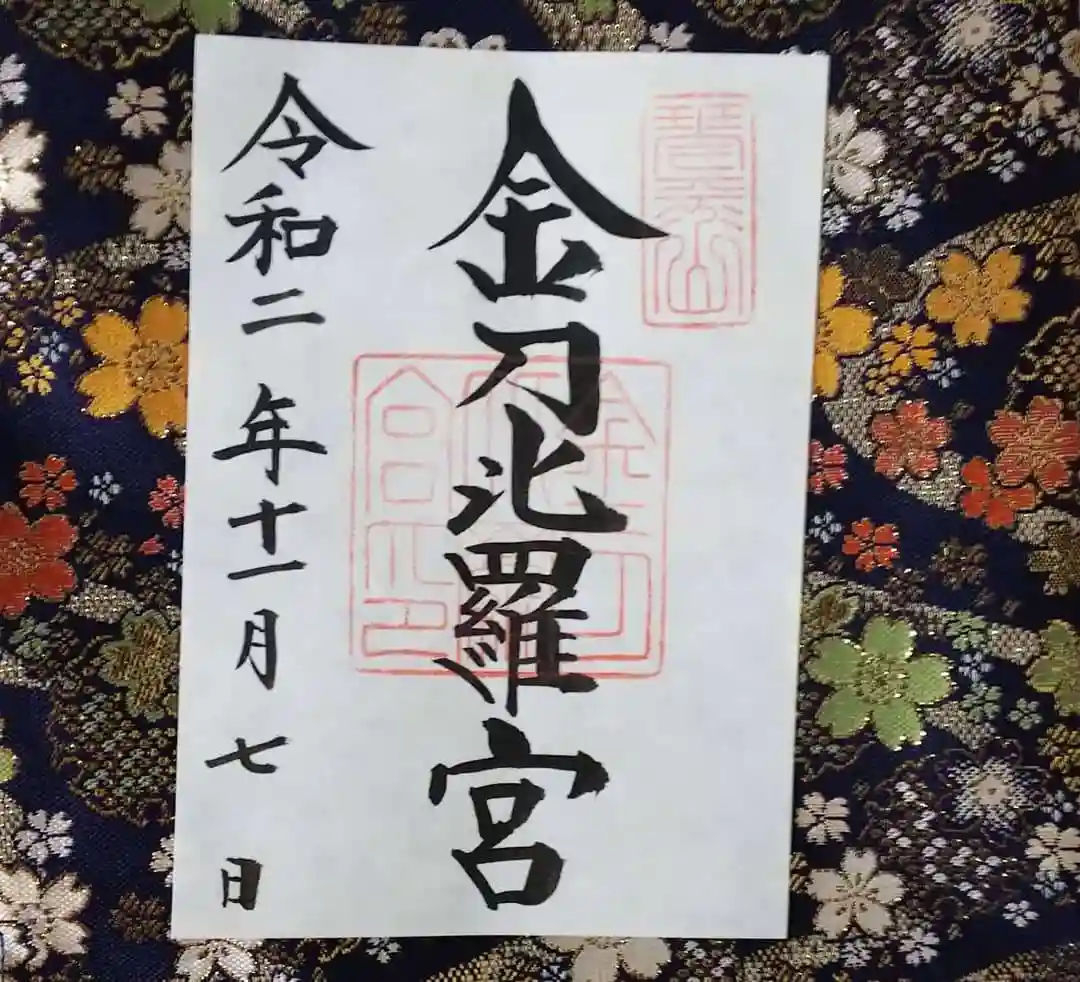 金刀比羅宮
金刀比羅宮之印
令和二年十一月七日